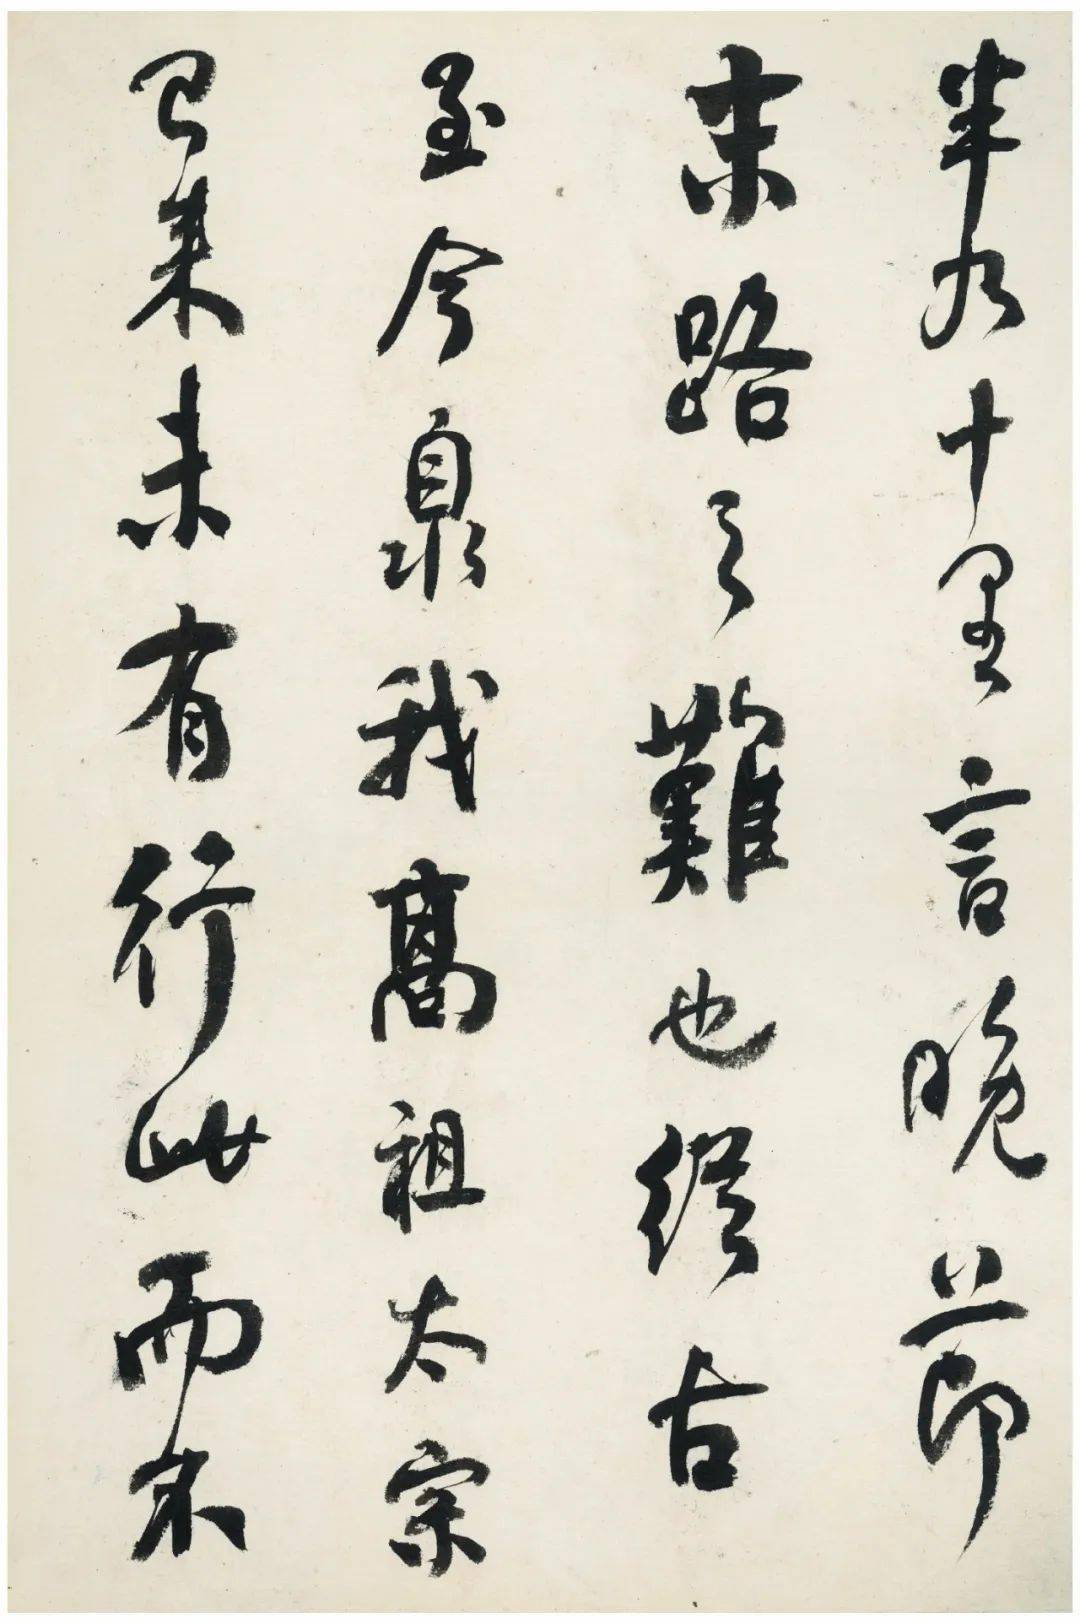 半九十里言晚節
末路之難也從古
至今泉我高祖太宗
已來未有行此而不